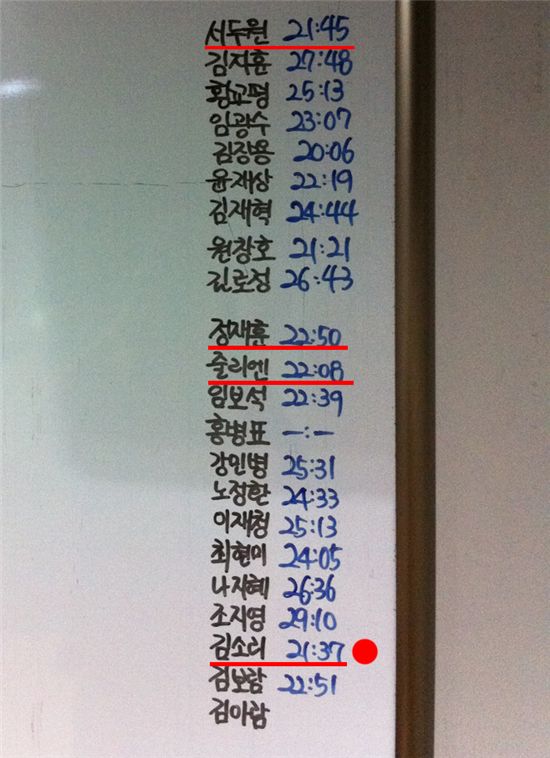 서두원 21:45
김지훈 27:48
황교평 25:13
임광수 23:07
김장용 20:06
윤재상 22:19
김재혁 24:44
원창호 21:21
길로정 26:43
정재훈 22:50
줄리엔 22:08
임보석 22:39
홍병표 -:-
강인병 25:31
노정환 24:33
이재청 25:13
최현미 24:05
나지혜 26:36
조지영 29:10
김소리 21:37
김보람 22:51
김아람